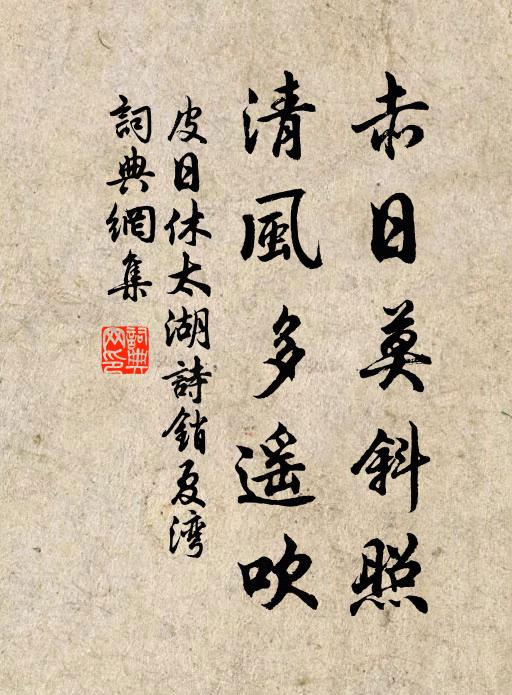 赤日莫斜照
清風多遥吹
皮日休太湖詩銷夏湾
詞典網集
詞典网印